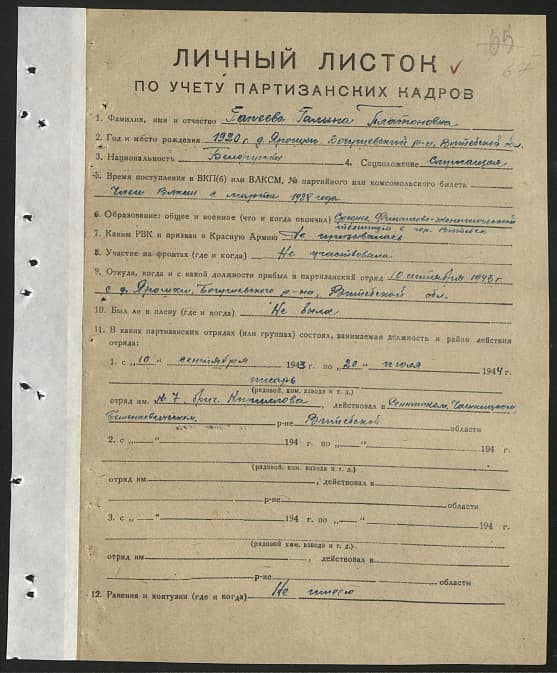 65
67
ЛИЧНЫЙ ЛИСТОК
ПО УЧЕТУ ПАРТИЗАНСКИХ КАДРОВ
1. Фамилия, имя и отчество Галина Платоновна
2. Год и место рождения 1920 г. д. Ярошки, Богушевский р-н, Витебской обл.
3. Национальность Белоруска 4. Соцположение Служащая
5. Время поступления в ВКП(б) или ВЛКСМ, № партийного или комсомольского билета
Член ВЛКСМ с марта 1938 года
6. Образование: общее и военное (что и когда окончил) Среднее, Финансово-экономический
техникум в гор. Витебск
7. Каким РВК и призван в Красную Армию Не призывалась
8. Участие на фронтах (где и когда) Не участвовала
9. Откуда, когда и с какой должности прибыл в партизанский отряд 10 сентября 1943 г
с д. Ярошки, Богушевского р-на, Витебской обл.
10. Был ли в плену (где и когда) Не была
11. В каких партизанских отрядах (или группах) состоял, занимаемая должность и район действия
отряда:
1. с „10“ сентября 1943 г. по „20“ июля 1944 г.
писарь
(рядовой, ком. взвода и т. д.)
отряд им. № 7, бриг. Кириллова, действовал в Сенненском, Чашникском,
р-не Витебской области
2. с „ “ 194 г. по „ “ 194 г.
(рядовой, ком. взвода и т. д.)
отряд им. , действовал в
р-не области
3. с „ “ 194 г. по „ “ 194 г.
(рядовой, ком. взвода и т. д.)
отряд им. , действовал в
р-не области
12. Ранения и контузии (где и когда) Не имею